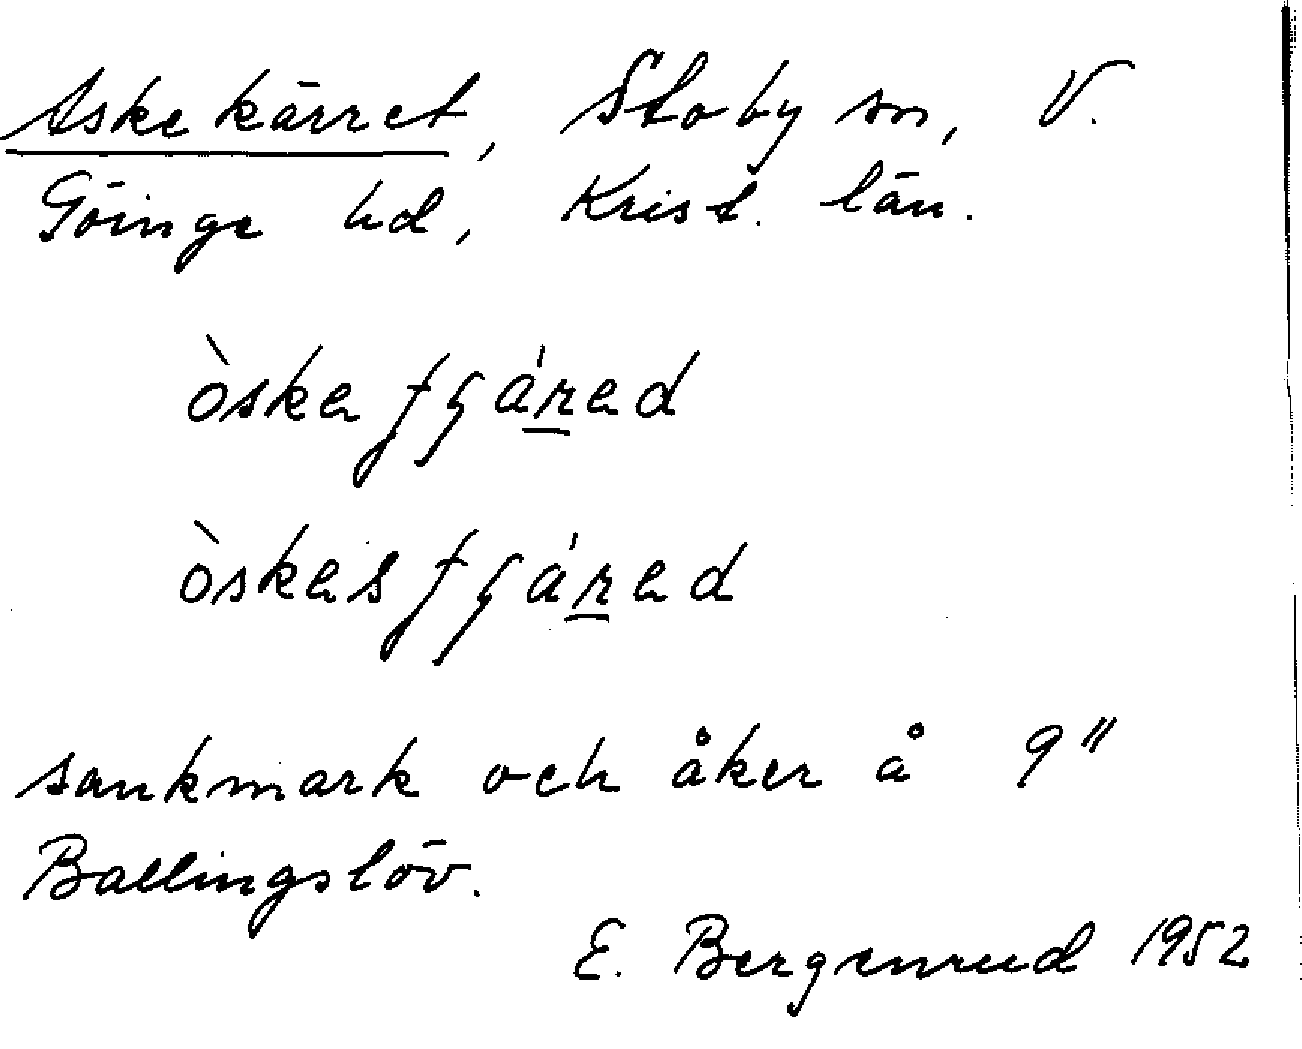 Askekärret, Stoby sn, V.
Göinge hd, Krist. län.
òskaƒʒáred
òskasƒʒáred
sankmark och åker å 9"
Ballingslöv.
E. Bergenrud 1952